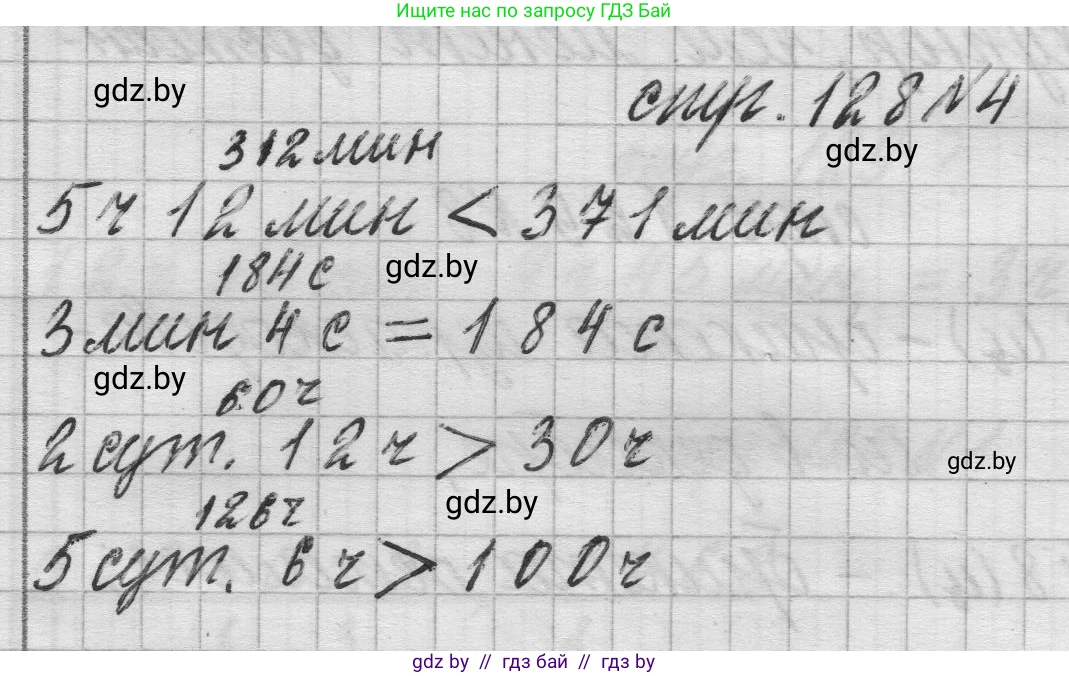 Ищите нас по запросу ГДЗ Бай
gdz.by
стр. 128 №4
gdz.by
312 мин
5 ч 12 мин < 371 мин
184 с
gdz.by
3 мин 4 с = 184 с
gdz.by
60 ч
2 сут. 12 ч > 30 ч
gdz.by
126 ч
gdz.by
5 сут. 6 ч > 100 ч
gdz by // гдз бай // гдз by